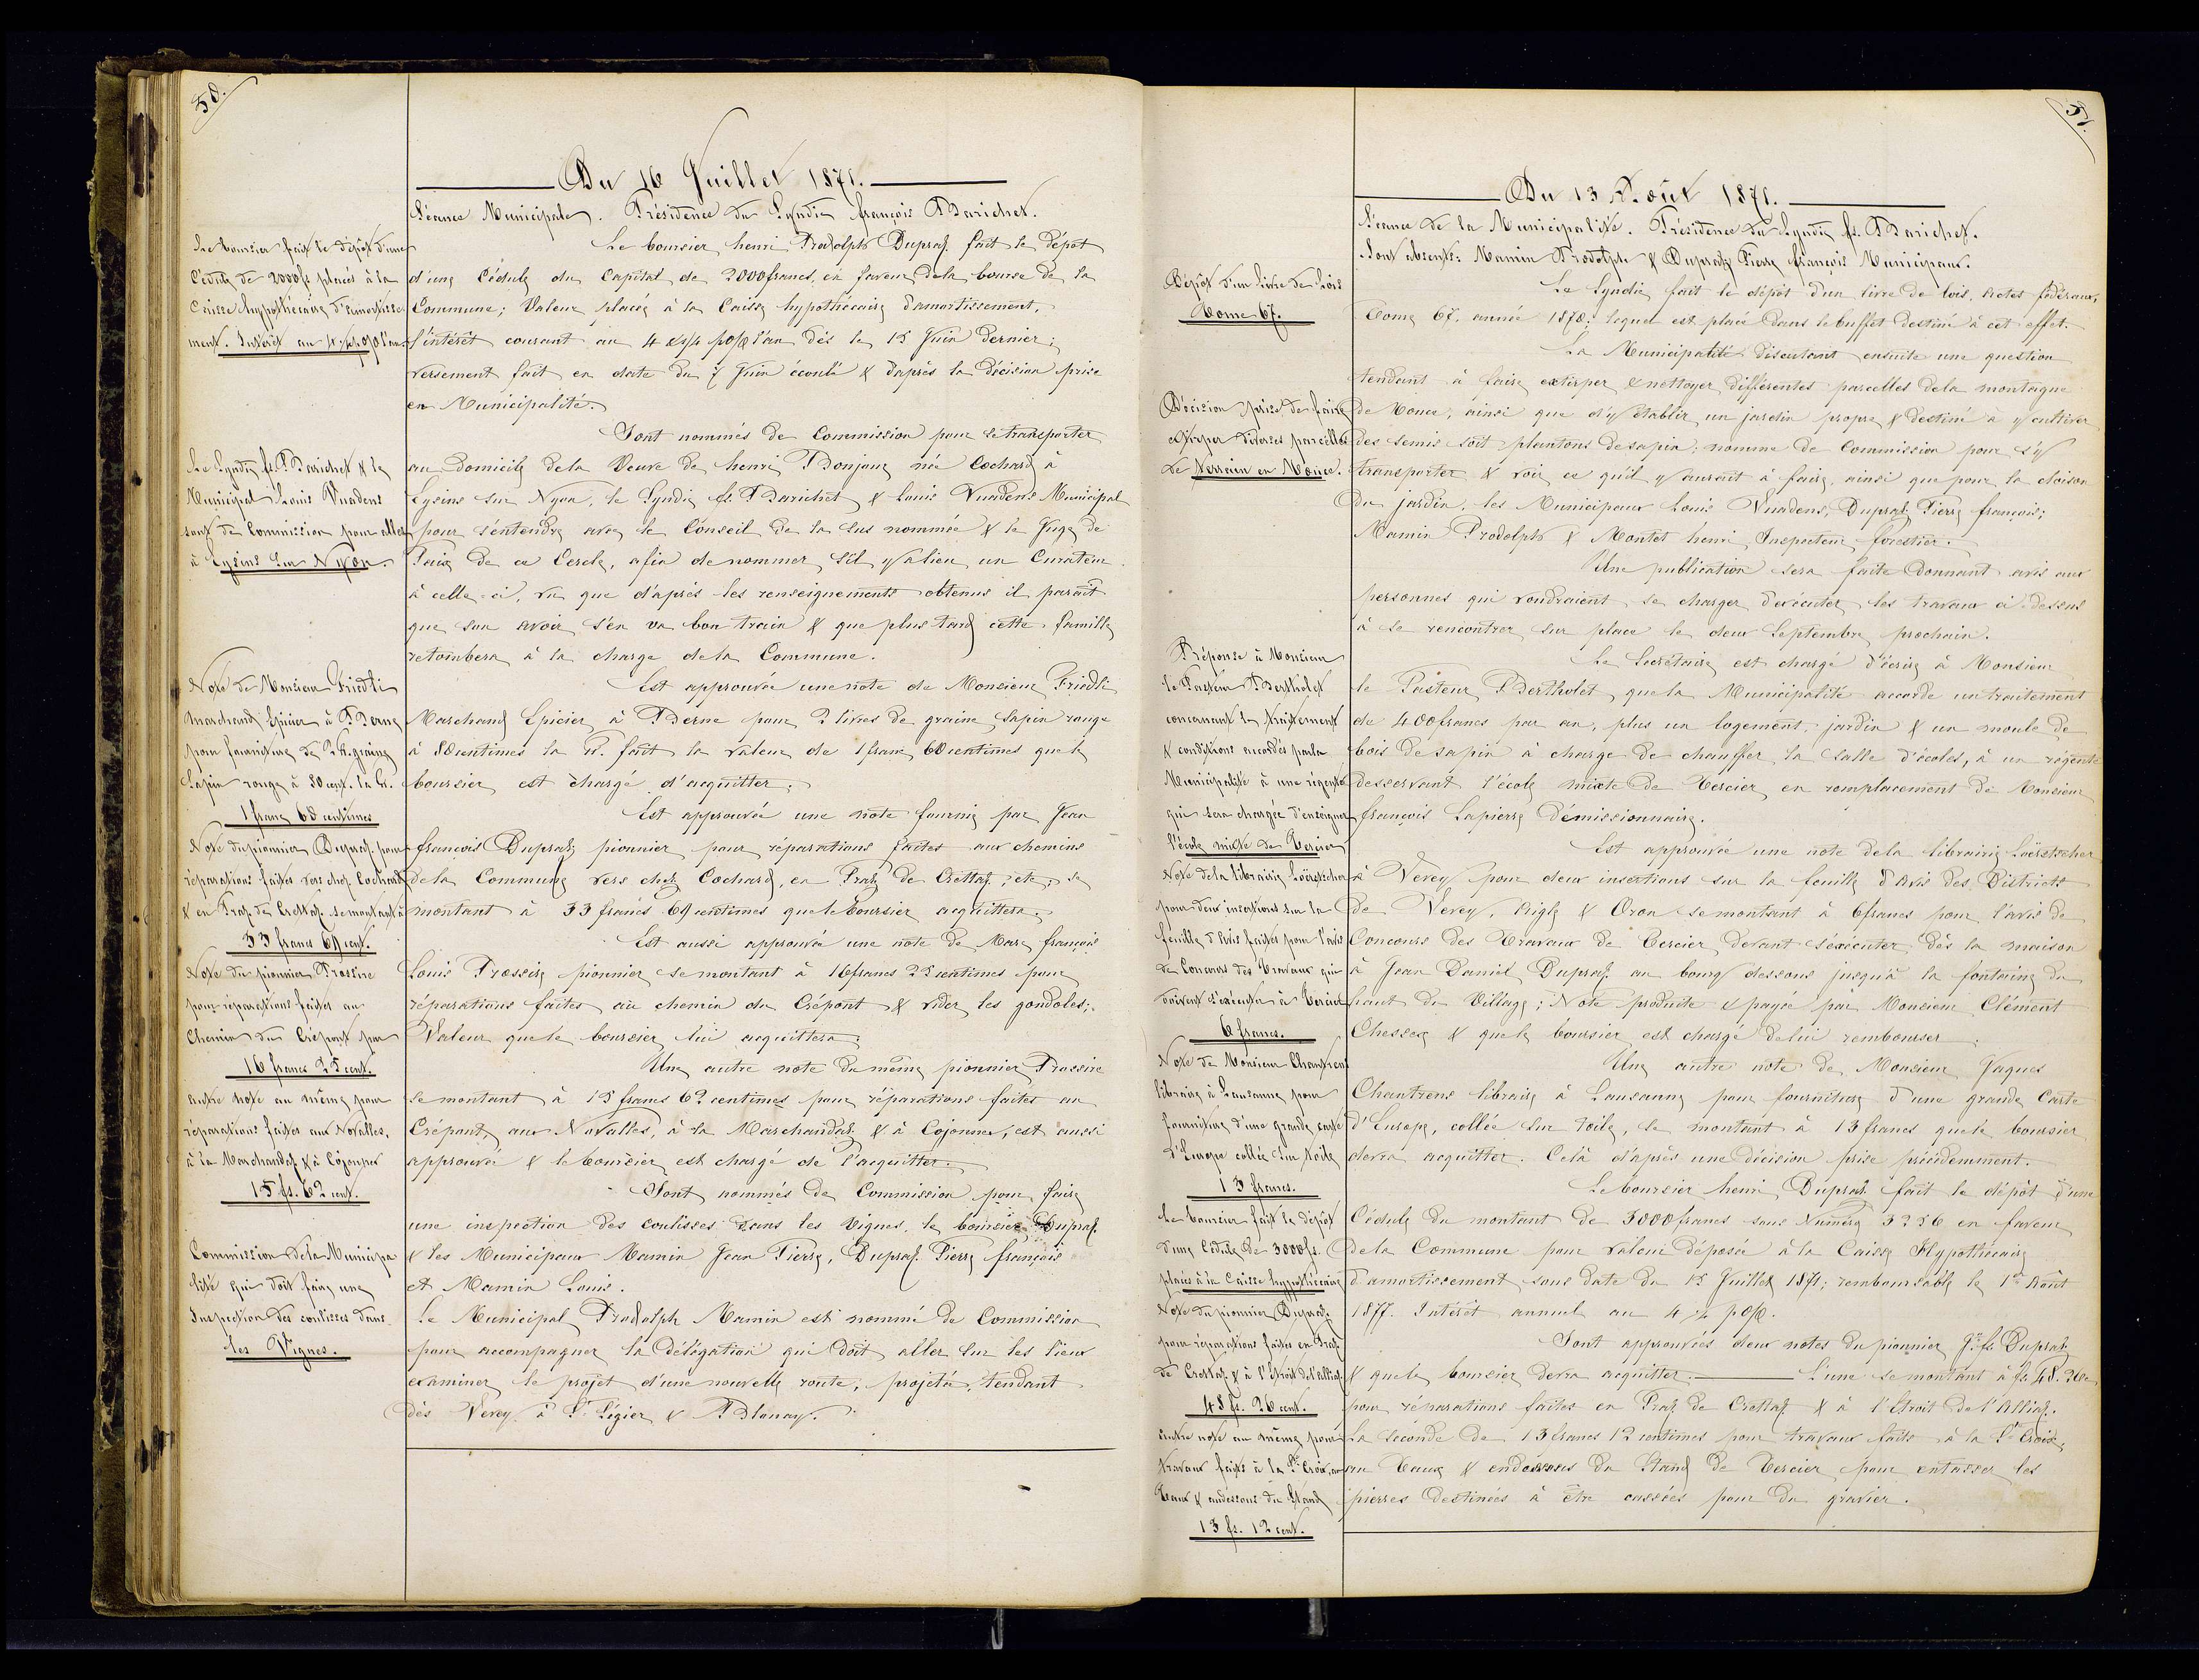 50.
Du 16 Juillet 1871.
Séance Municipale. Présidence du Syndic françois Barichet.
Le boursier fait le dépôt d'une
Cédule de 2000 fs placés à la
Caisse hypothécaire d'amortisse
ment. Intérêt au 4 1/4 0/0 l'an.
Le boursier henri Frodolph Dupraz fait le dépôt
d'une Cédule du Capital de 2000 francs, en faveur de la bourse de la
Commune; Valeur placée à la Caisse hypothécaire d'amortissement,
l'intérêt courant au 4 & 1/4 p 0/0 l'an dès le 15 Juin dernier;
versement fait en date du 7 Juin écoulé & d'après la décision prise
en Municipalité.
Le Syndic fs. Barichet & le
Municipal Louis Vuadens
sont de Commission pour aller
à Eysins sur Nyon.
Sont nommés de Commission pour se transporter
au domicile de la Veuve de henri Bonjour née Cochard à
Eysins sur Nyon, le Syndic fs. Barichet & Louis Vuadens Municipal
pour s'entendre avec le Conseil de la sus nommée & le Juge de
Paix de ce Cercle, afin de nommer s'il y a lieu un Curateur
à celle-ci, vu que d'après les renseignements obtenus il parait
que son avoir s'en va bon train & que plus tard cette famille
retombera à la charge de la Commune.
Note de Monsieur Friedli
Marchand Epicier à Berne
pour fourniture de 2 lt. graine
Sapin rouge à 80 cent. la lt.
1 franc 60 centimes
Est approuvée une note de Monsieur Friedli
Marchand Epicier à Berne pour 2 livres de graine Sapin rouge
à 80 centimes la lt. fait la valeur de 1 franc 60 centimes que le
boursier est chargé d'acquitter.
Note du pionnier Dupraz pour
réparations faites vers chez Cochard
& en Praz de Crettaz se montant à
33 francs 69 cent.
Est approuvée une note fournie par Jean
françois Dupraz pionnier pour réparations faites aux chemins
de la Commune vers chez Cochard, en Praz de Crettaz, etc, se
montant à 33 francs 69 centimes que le boursier acquittera.
Note du pionnier Frossire
pour réparations faites au
Chemin du Crépont par
16 francs 25 cent.
Est aussi approuvée une note de Marc françois
Louis Frossire pionnier se montant à 16 francs 25 centimes pour
réparations faites au chemin du Crépont & vider les gondoles;
Valeur que le boursier lui acquittera.
autre note au même pour
réparations faites aux Novalles,
à la Marchandaz & à Cojonnex
15 fs. 62 cent.
Une autre note du même pionnier Frossire
se montant à 15 francs 62 centimes pour réparations faites au
Crépont, aux Novalles, à la Marchandaz & à Cojonnex, est aussi
approuvée & le boursier est chargé de l'acquitter.
Commission de la Municipa
lité qui doit faire une
Inspection des coulisses dans
les Vignes.
Sont nommés de Commission pour faire
une inspection des coulisses dans les vignes, le boursier Dupraz
& les Municipaux Mamin Jean Pierre, Dupraz Pierre françois
et Mamin Louis.
Le Municipal Frodolph Mamin est nommé de Commission
pour accompagner la délégation qui doit aller sur les lieux
examiner le projet d'une nouvelle route, projetée, tendant
dès Vevey à St. Légier & Blonay.
51.
Du 13 Août 1871.
Séance de la Municipalité. Présidence du Syndic fs. Barichet.
Sont absents: Mamin Frodolph & Dupraz Pierre françois Municipaux.
Dépôt d'un livre de lois
Tome 67.
Le Syndic fait le dépôt d'un livre de lois, Actes fédéraux,
Tome 67, année 1870; lequel est placé dans le buffet destiné à cet effet.
Décision prise de faire
extirper diverses parcelles
de terrain en Mouce.
La Municipalité discutant ensuite une question
tendant à faire extirper & nettoyer différentes parcelles de la montagne
de Mouce, ainsi que d'y établir un jardin propre & destiné à y cultiver
des semis soit plantons de sapin; nomme de Commission pour s'y
transporter & voir ce qu'il y aurait à faire, ainsi que pour la cloison
du jardin, les Municipaux Louis Vuadens, Dupraz Pierre françois;
Mamin Frodolph & Montet henri, Inspecteur forestier.
Une publication sera faite donnant avis aux
personnes qui voudraient se charger d'exécuter les travaux ci-dessus
à se rencontrer sur place le deux Septembre prochain.
Réponse à Monsieur
le Pasteur Bertholet
concernant le traitement
& conditions accordés par la
Municipalité à une régente
qui sera chargée d'enseigner
l'école mixte de Tercier
Le Secrétaire est chargé d'écrire à Monsieur
le Pasteur Bertholet, que la Municipalité accorde un traitement
de 400 francs par an, plus un logement, jardin & un moule de
bois de sapin à charge de chauffer la Salle d'écoles, à un régente
desservant l'école mixte de Tercier, en remplacement de Monsieur
françois Lapierre démissionnaire.
Note de la librairie Loërtscher
pour deux insertions sur la
feuille d'Avis faites pour l'avis
de Concours des Travaux qui
doivent s'exécuter à Tercier
6 francs.
Est approuvée une note de la librairie Loërtscher
à Vevey pour deux insertions sur la feuille d'Avis des Districts
de Vevey, Aigle & Oron se montant à 6 francs pour l'avis de
Concours des Travaux de Tercier devant s'éxécuter dès la maison
à Jean Daniel Dupraz au bourg dessous jusqu'à la fontaine du
haut du Village; Note produite & payée par Monsieur Clément
Chessex & que le boursier est chargé de lui rembourser.
Note de Monsieur Chantrens
libraire à Lausanne pour
fourniture d'une grande carte
d'Europe collée sur toile
13 francs.
Une autre note de Monsieur Jaques
Chantrens libraire à Lausanne pour fourniture d'une grande Carte
d'Europe, collée sur toile, se montant à 13 francs que le boursier
devra acquitter. Celà d'après une décision prise précédemment.
Le boursier fait le dépôt
d'une Cédule de 3000 fs.
placés à la Caisse hypothécaire
Le boursier henri Dupraz fait le dépôt d'une
Cédule du montant de 3000 francs sous Numéro 3256 en faveur
de la Commune pour valeur déposée à la Caisse Hypothécaire
d'amortissement sous date du 15 Juillet 1871; remboursable le 1er Août
1877. Intérêt annuel au 4 1/4 p 0/0.
Note du pionnier Dupraz
pour réparations faites en Praz
de Crettaz & à l'Etroit de l'alliaz
48 fs. 26 cent.
Sont approuvées deux notes du pionnier Jn. fs. Dupraz
& que le boursier devra acquitter. L'une se montant à fs. 48. 26 c
pour réparations faites en Praz de Crettaz & à l'Etroit de l'Alliaz.
autre note au même pour
travaux faits à la St. Croix, au
Taux & endessous du Stand
13 fs. 12 cent.
La seconde de 13 francs 12 centimes pour travaux faits à la St. Croix,
au Taux & endessous du Stand de Tercier, pour entasser les
pierres destinées à être cassées pour du gravier.